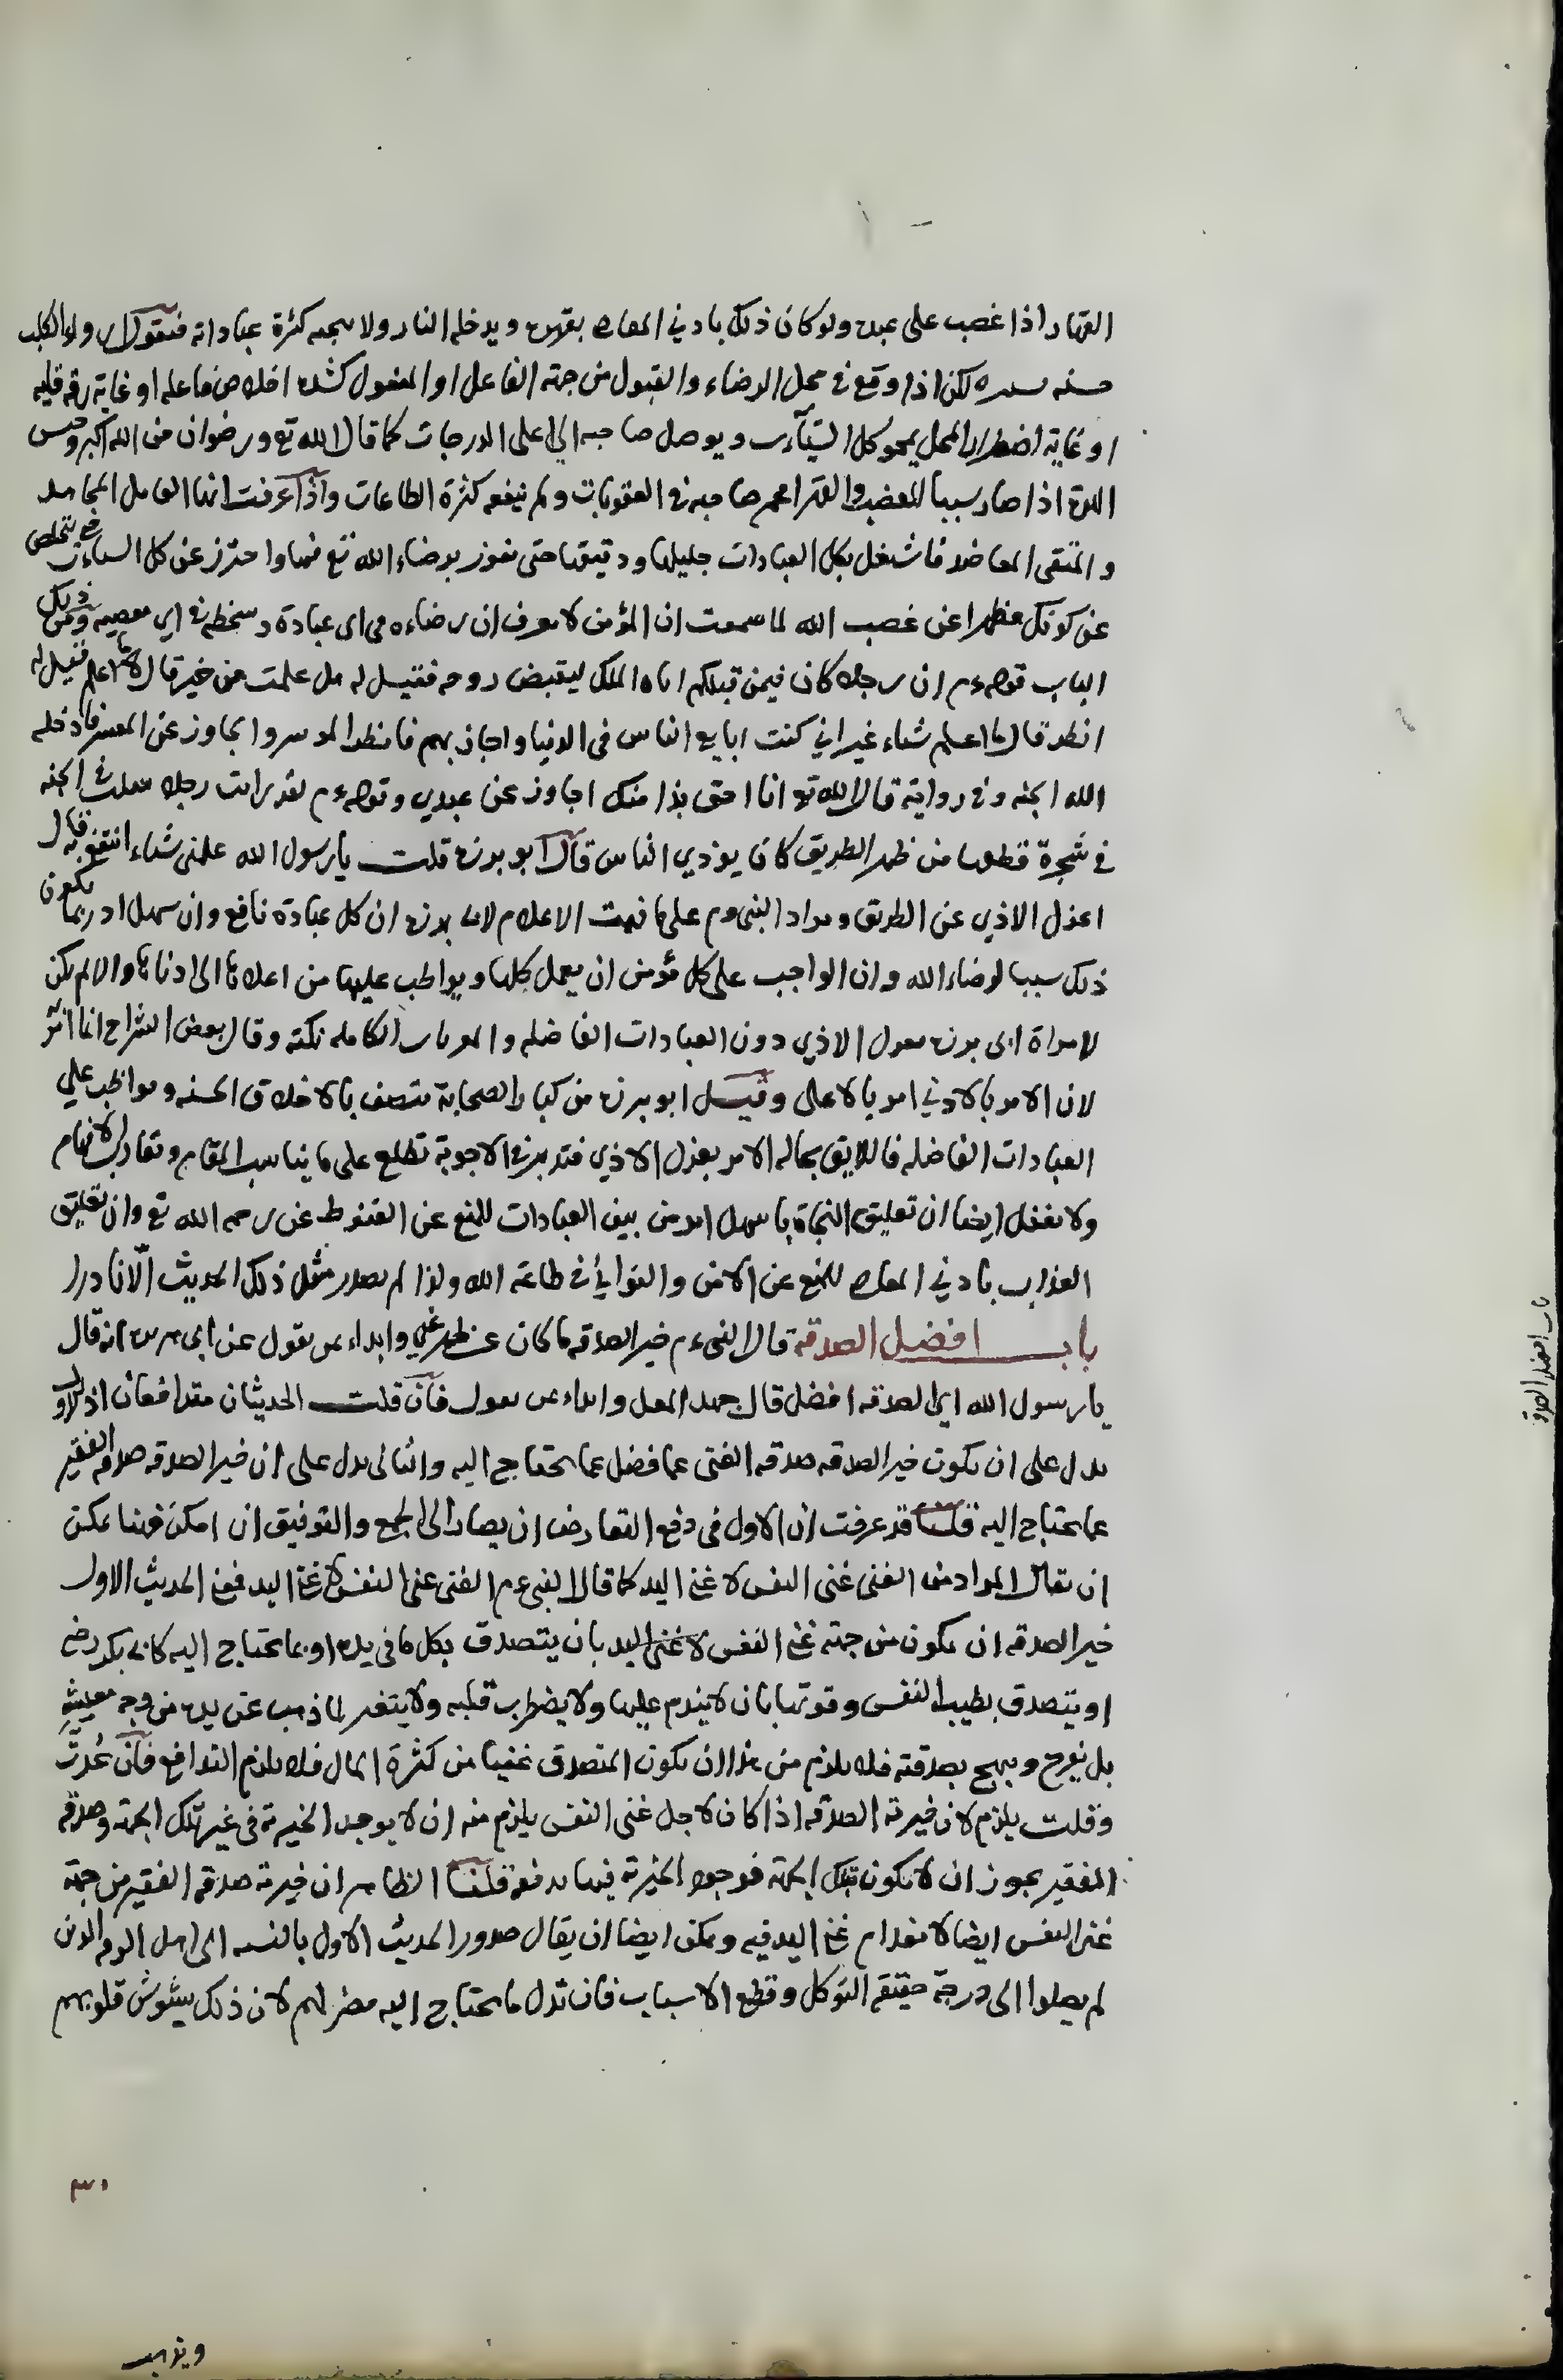 القهار اذا غضب على عبده ولو كان ذلك بادني المعاصي بقهره ويدخله النار ولا ينجيه كثرة عباداته فنقول ارواء الكلب
حسنه يسيره لكن اذا وقع في محل الرضاء والقبول من جهة الفاعل او المفعول كشدة اخلاص فاعله او غاية رقة قلبه
او غاية اضطرار المحل يمحو كل السيّآت ويوصل صاحبه الى اعلى الدرجات كما قال الله تع ورضوان من الله اكبر وحبس
الهرة اذا صار سببا للغضب والقهر صاحبه في العقوبات ولم ينفعه كثرة الطاعات واذا عرفت ايها العامل المجاهد
والمتقى فاشتغل بكل العبادات جليلها ودقيقها حتى تفوز برضاء الله تع فيها واحترز عن كل السيئات حتى تتخلص
عن كونك مظهرا عن غضب الله لما سمعت ان المؤمن لا يعرف ان رضاءه في اى عبادة وسخطه في اي معصية ومن ذلك
الباب قوله ءم ان رجلا كان فيمن قبلكم اتاه الملك ليقبض روحه فقيل له هل علمت من خير قال ما اعلم فقيل له
انظر قال ما اعلم شياء غير اني كنت ابايع الناس في الدنيا واجازيهم فانظر الموسر واتجاوز عن المعسر فادخله
الله الجنه وفي رواية قال الله تع انا احق بذا منك اجاوز عن عبدي وقوله ءم لقد رايت رجلا يتقلب في الجنه
في شجرة قطعها من ظهر الطريق كان يؤذي الناس قال ابو برزه قلت يا رسول الله علمنى شياء انتفع به قال
اعزل الاذي عن الطريق ومراد النبى ءم على ما فهمت الاعلام لابى برزه ان كل عبادة نافع وان سهل اذ ربما يكون
ذلك سببا لرضاء الله وان الواجب على كل مؤمن ان يعمل كلها ويواظب عليها من اعلاها الى ادناها والا لم يكن
لامراة ابى برزه بعزل الاذي دون العبادات الفاضله والقربات الكامله نكتة وقال بعض الشراح انما اثر
لان الامر بالادني امر بالاعلى وقيل ابو برزه من كبار الصحابة متصف بالاخلاق الحسنه ومواظب على
العبادات الفاضله فاللايق بحاله الامر بعزل الاذي فتدبر في الاجوبة تطلع على ما يناسب المقام
ولا تغفل ايضا ان تعليق النجاة باسهل امر من بين العبادات للمنع عن القنوط عن رحمه الله تع وان تعليق
العذاب بادني المعاصي للمنع عن الامن والتواني في طاعة الله ولذا لم يصدر مثل ذلك الحديث الّا نادرا
باب افضل الصدقه قال النبى ءم خير الصدقه ما كان عن ظهر غني وابداء بمن تعول عن ابى هريره انه قال
يا رسول الله اي الصدقه افضل قال جهد المقل وابداء بمن تعول فان قلت الحديثان متدافعان اذ الاول
يدل على ان يكون خير الصدقه صدقه الغنى عما فضل عما يحتاج اليه والثانى يدل على ان خير الصدقه صدقه الفقير
عما يحتاج اليه قلنا قد عرفت ان الاول في دفع التعارض ان يصار الى الجمع والتوفيق ان امكن فهنا يمكن
ان يقال المراد من الغنى غنى النفس لا غنى اليد كما قال النبى ءم الغنى غنى النفس لا غنى اليد فمعنى الحديث الاول
خير الصدقه ان يكون من جهة غنى النفس لا غنى اليد بان يتصدق بكل ما في يده او بما يحتاج اليه كابى بكر رضى
او يتصدق بطيب النفس وقوتها بان لا يندم عليها ولا يضطرب قلبه ولا يتغير لما ذهب عن يده من وجه معيشته
بل يفرح ويبهج بصدقته فلا يلزم من هذا ان يكون المتصدق غنيا من كثرة المال فلا يلزم التدافع فان عُدتَّ
وقلت يلزم لان خيرية الصدقه اذا كان لاجل غنى النفس يلزم منه ان لا يوجد الخيرية في غير تلك الجهة وصدقه
الفقير يجوز ان لا يكون بتلك الجهة فوجود الخيرية فيها يدفعه قلنا الظاهر ان خيرية صدقه الفقير من جهة
غنى النفس ايضا لانعدام غنى اليد فيه ويمكن ايضا ان يقال صدور الحديث الاول بالنسبه الى اهل الذين
لم يصلوا الى درجة حقيقه التوكل وقطع الاسباب فان بذل ما يحتاج اليه مضر لهم لان ذلك يشوش قلوبهم
٣٠
ويذهب
باب افضل الصدقة